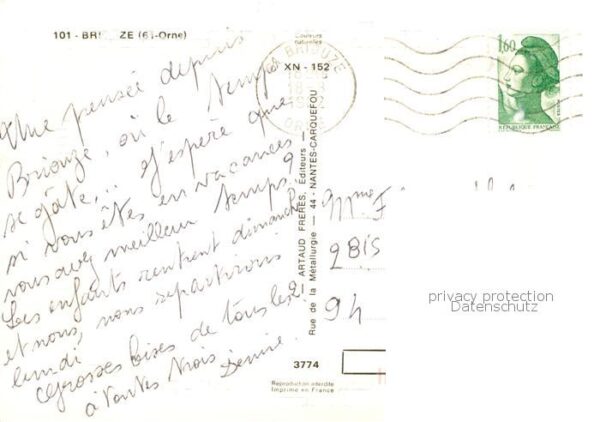 101 - BRI ZE (61-Orne)
Couleurs
naturelles
XN - 152
BRIOUZE
ORNE
1,60
REPUBLIQUE FRANÇAISE
Une pensée depuis
Briouze, où le temps
se gâte... J'espère que
si vous êtes en vacances
vous avez meilleur temps.
Les enfants rentrent dimanche
et nous, nous repartirons
lundi
Grosses bises de tous les 2
à toutes trois Denise.
ARTAUD FRERES, Éditeurs -
Rue de la Métallurgie - 44 - NANTES-CARQUEFOU
Mme F
2BIS
94
privacy protection
Datenschutz
3774
Reproduction interdite
Imprimé en France